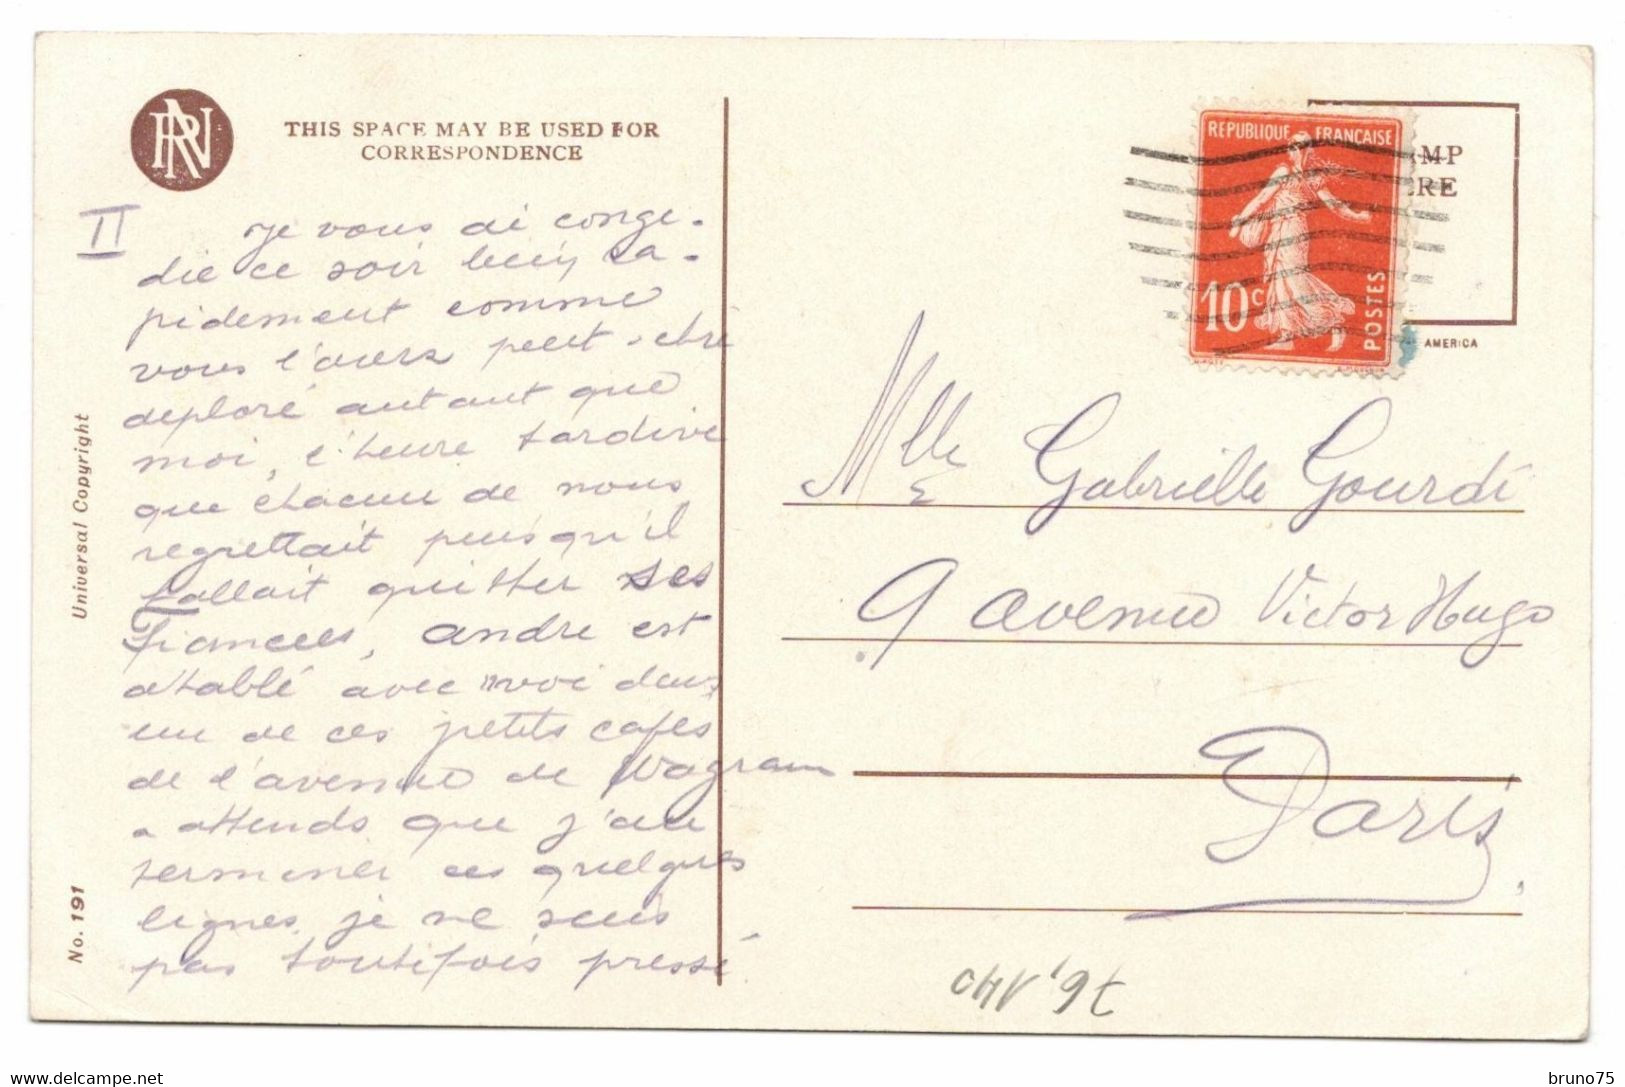 RN
THIS SPACE MAY BE USED FOR
CORRESPONDENCE
II
Je vous ai conge-
die ce soir bien ra-
pidement comme
vous l'avez peut-etre
deploré autant que
moi, l'heure tardive
que chacun de nous
regrettait puisqu'il
fallait quitter ses
Fiancees, andre est
atablé avec moi dans
un de ces petits cafes
de l'avenue de Wagram
attends que j'ai
terminer ces quelques
lignes, je ne suis
pas toutefois pressé
Universal Copyright
No. 191
REPUBLIQUE FRANCAISE
10c
POSTES
AMP
ERE
AMERICA
Mlle Gabrielle Gourdi
9 avenue Victor Hugo
Paris
bruno75